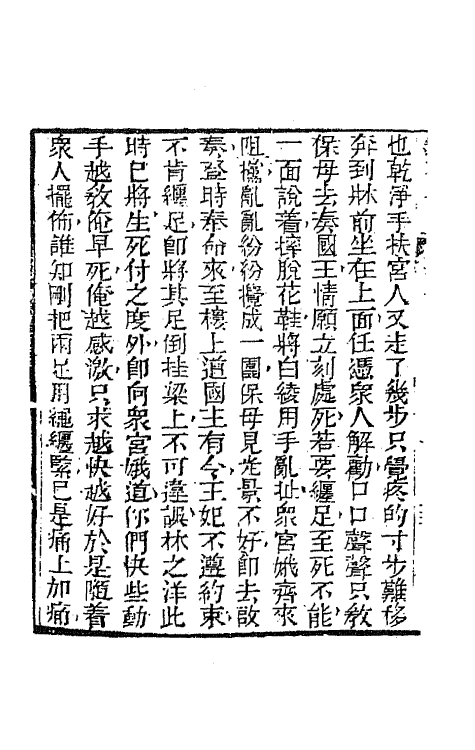 也乾淨手扶宮人又走了幾步只覺疼的寸步難移
奔到牀前坐在上面任憑衆人解勸口口聲聲只教
保母去奏國王情願立刻處死若要纏足至死不能
一面說着摔脫花鞋將白綾用手亂扯衆宮娥齊來
阻攩亂亂紛紛攪成一團保母見光景不好卽去啟
奏登時奉命來至樓上道國主有令王妃不遵約束
不肯纏足卽將其足倒挂梁上不可違誤林之洋此
時已將生死付之度外卽向衆宮娥道你們快些動
手越教俺早死俺越感激只求越快越好於是隨着
衆人擺佈誰知剛把兩足用繩纏緊已是痛上加痛